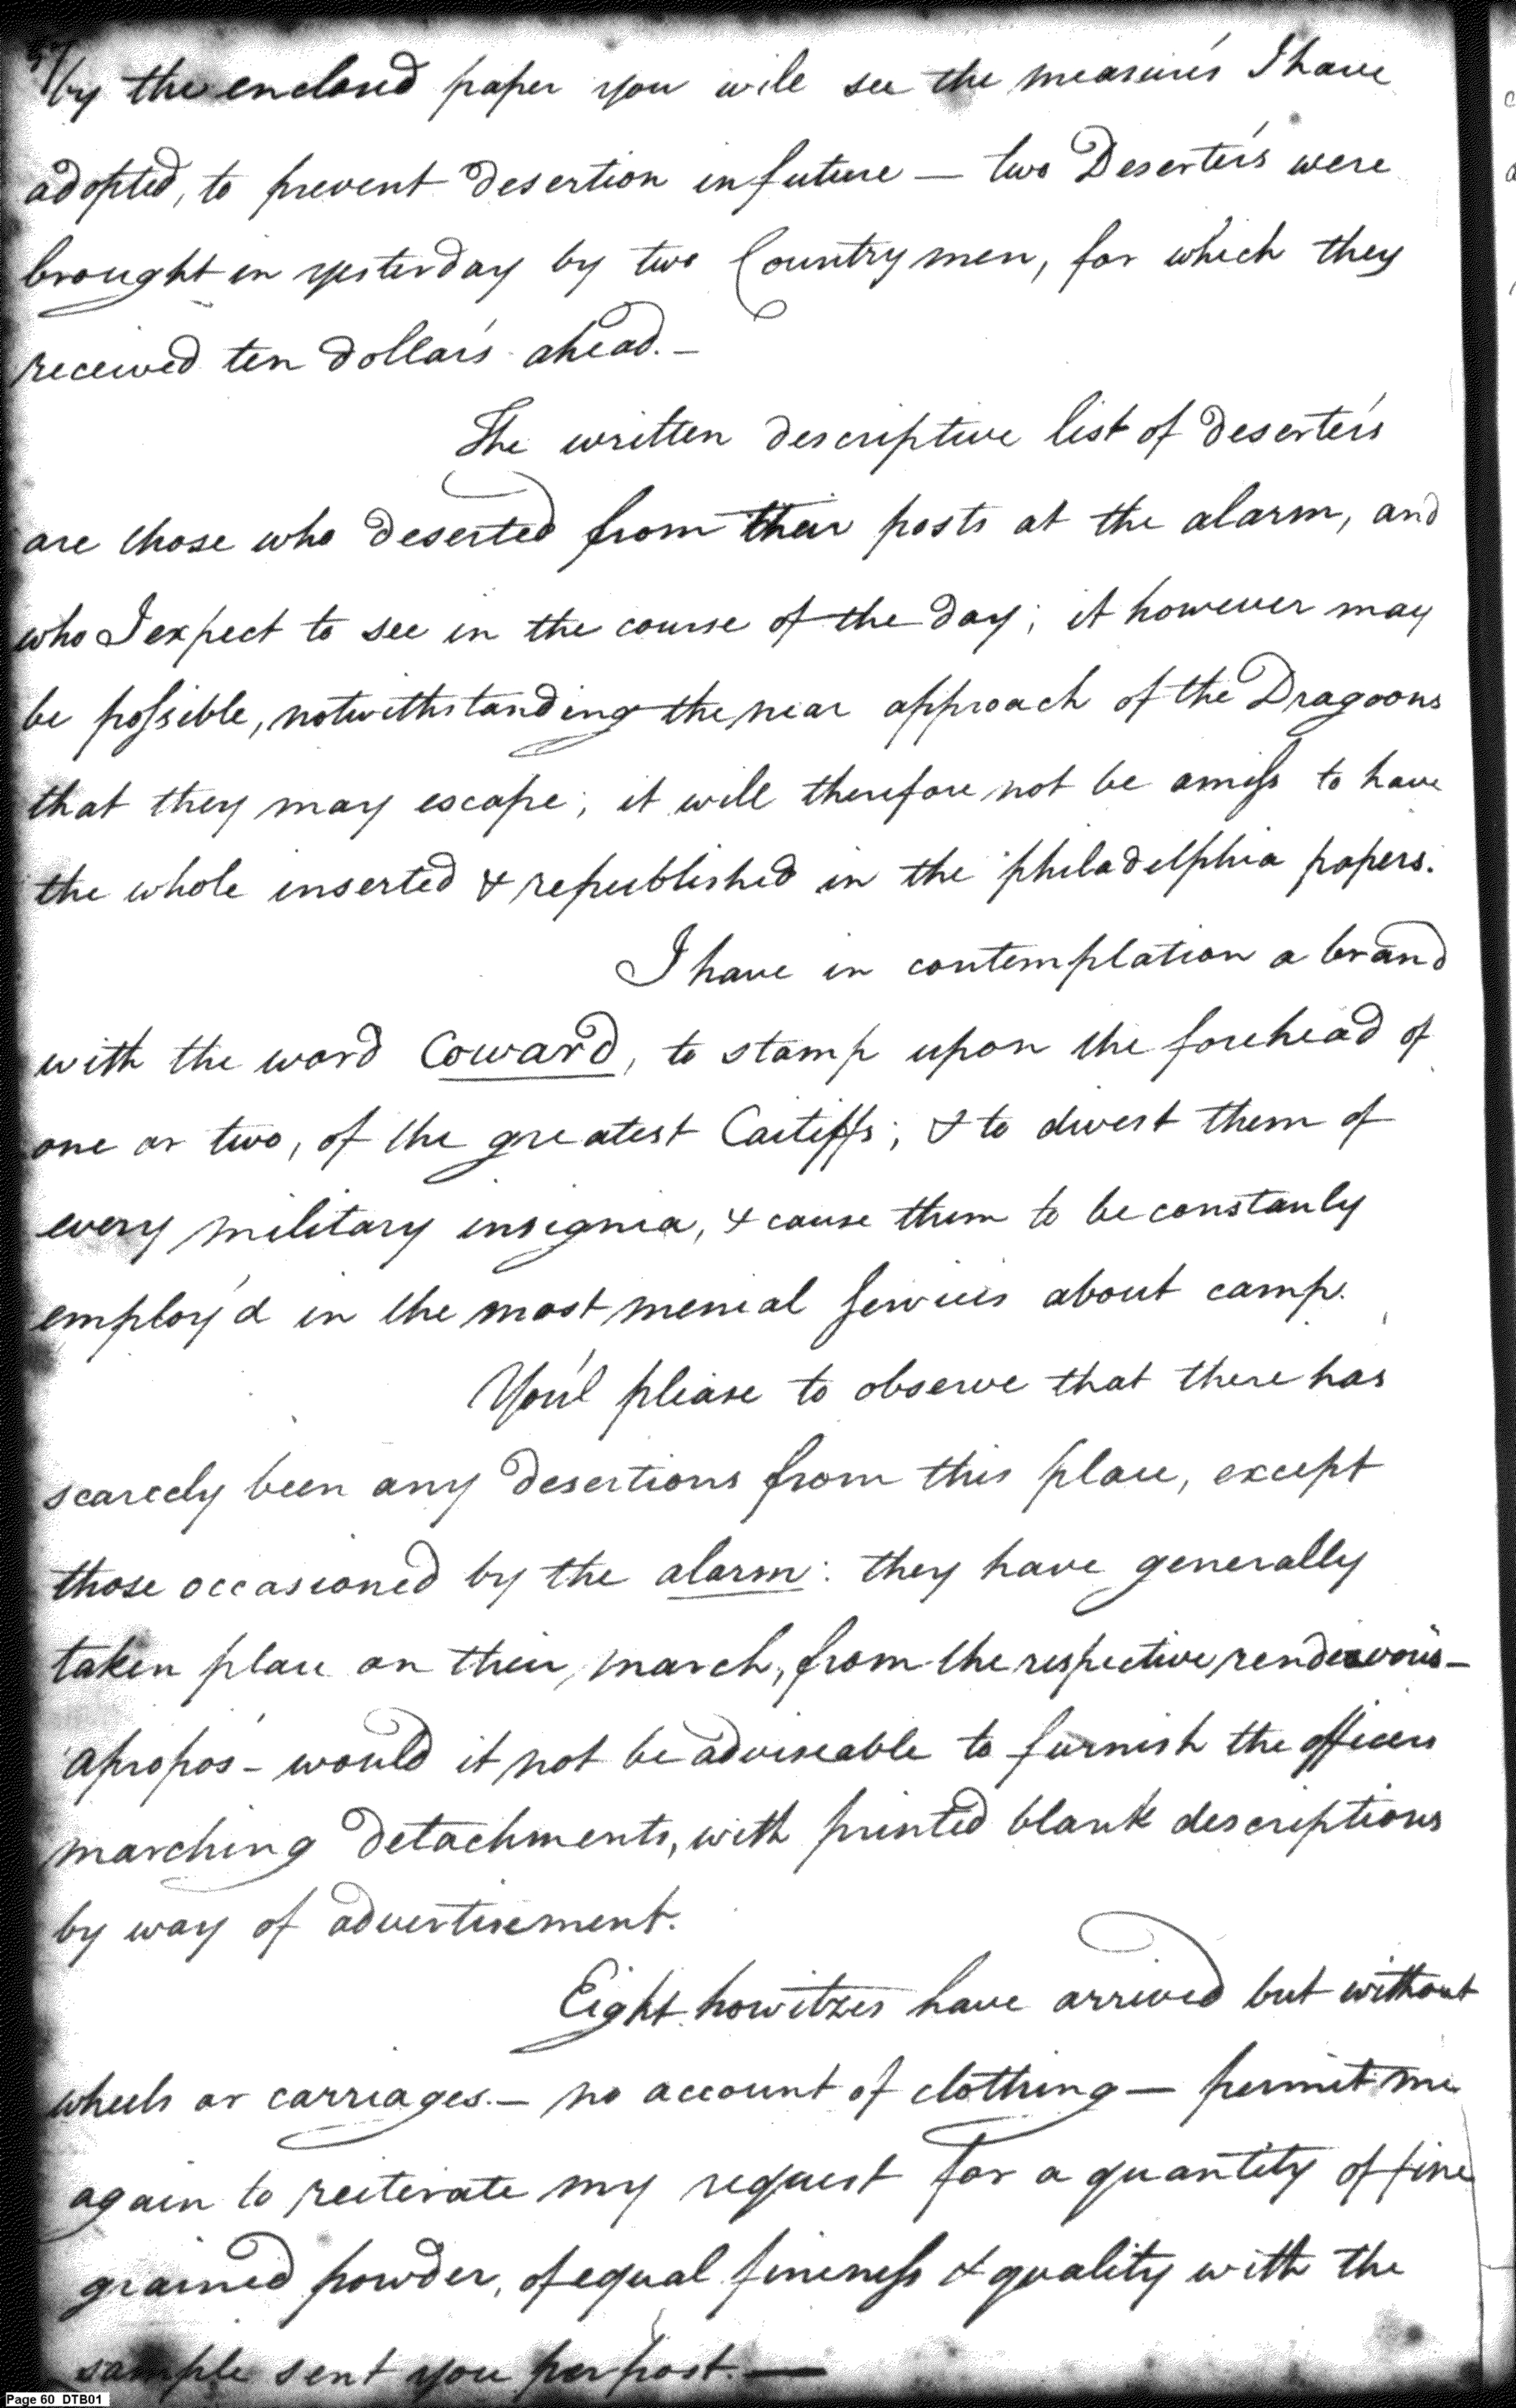 57/
by the enclosed paper you will see the measure's I have
adopted, to prevent desertion in future — two Deserter's were
brought in yesterday by two Countrymen, for which they
received ten dollar's ahead. —
The written descriptive list of deserter's
are those who deserted from their posts at the alarm, and
who I expect to see in the course of the day; it however may
be possible, notwithstanding the near approach of the Dragoons
that they may escape; it will therefore not be amiss to have
the whole inserted & republished in the philadelphia papers.
I have in contemplation a brand
with the word Coward, to stamp upon the forehead of
one or two, of the greatest Caitiffs; & to divest them of
every military insignia, & cause them to be constanly
employ'd in the most menial services about camp.
You'l please to observe that there has
scarcely been any desertions from this place, except
those occasioned by the alarm: they have generally
taken place on their march, from the respective rendezvous —
apropos — would it not be adviseable to furnish the officers
marching detachments, with printed blank descriptions
by way of advertisement.
Eight howitzers have arrived but without
wheels or carriages. — no account of clothing — permit me
again to reiterate my request for a quantity of fine
grained powder, of equal fineness & quality with the
sample sent you per post. —
Page 60 DTB01